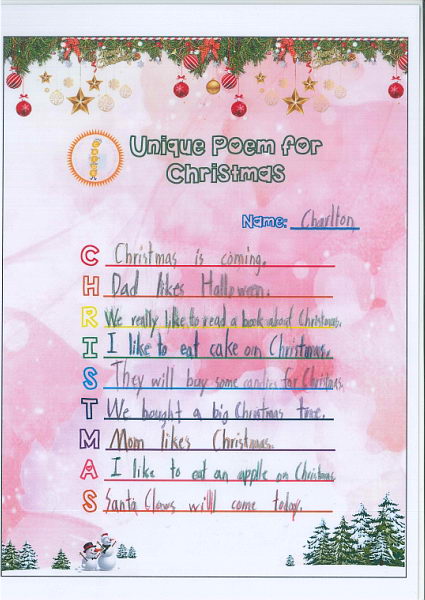 Unique Poem for
Christmas
Name: Charlton
C Christmas is coming.
H Dad likes Halloween.
R We really like to read a book about Christmas.
I I like to eat cake on Christmas.
S They will buy some candies for Christmas.
T We bought a big Christmas tree.
M Mom likes Christmas.
A I like to eat an apple on Christmas
S Santa Claws will come today.